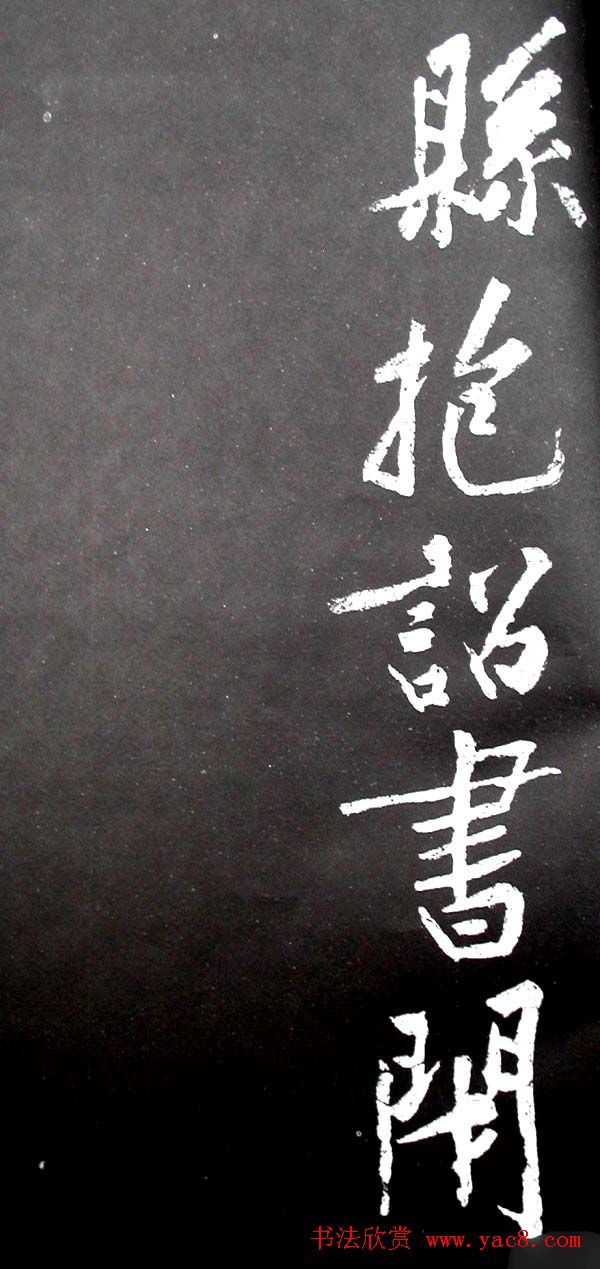 縣抱詔書閑
书法欣赏 www.yac8.com